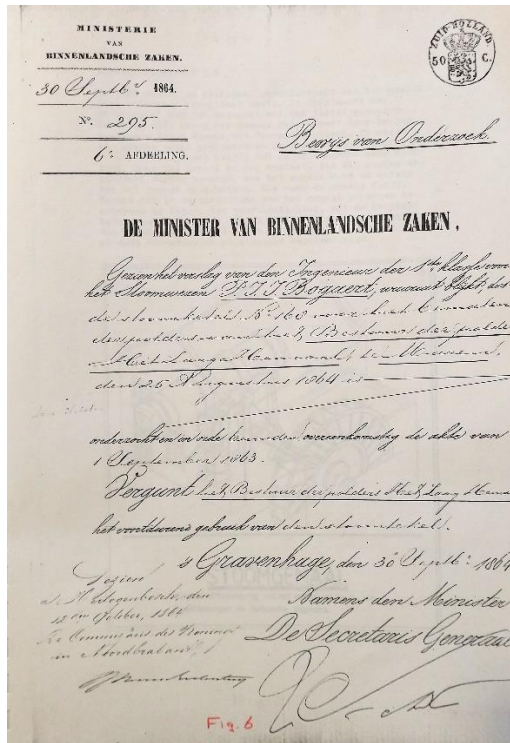 MINISTERIE
VAN
BINNENLANDSCHE ZAKEN.
30 Septb.r 1864.
No. 295.
6e AFDEELING.
ZUID-HOLLAND.
50 C.
Bewijs van Onderzoek.
DE MINISTER VAN BINNENLANDSCHE ZAKEN,
Gezien het verslag van den Ingenieur der 1ste klasse voor
het Stoomwezen P.I.I. Bogaert, waaruit blijkt, dat
de stoomketel No 168 voor het
het Bestuur der polde
den 25 Augustus 1864 is
onderzocht en in orde bevonden overeenkomstig de akte van
1 September 1863.
Vergunt het Bestuur der polders Het Laag Hem
het voortdurend gebruik van den stoomketel.
's Gravenhage, den 30 Septb.r 1864
Namens den Minister
De Secretaris Generaal
Gezien
den
18 den October, 1864
De Commissaris des Konings
in Noordbrabant,
Fig. 6